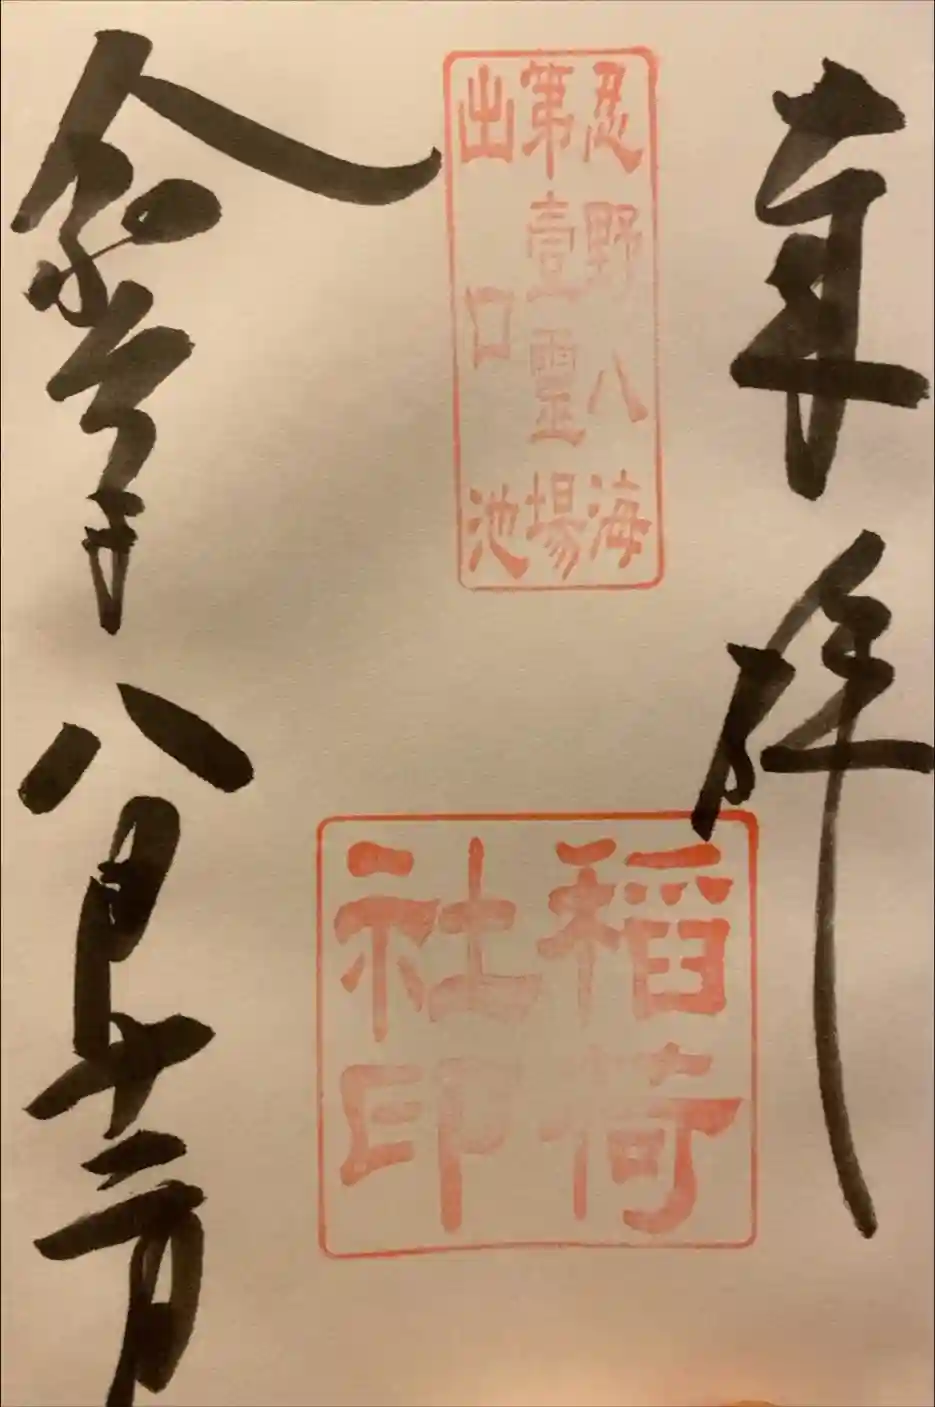 奉拝
忍野八海
第壹霊場
出口池
稲荷
社印
令和 年八月十二日